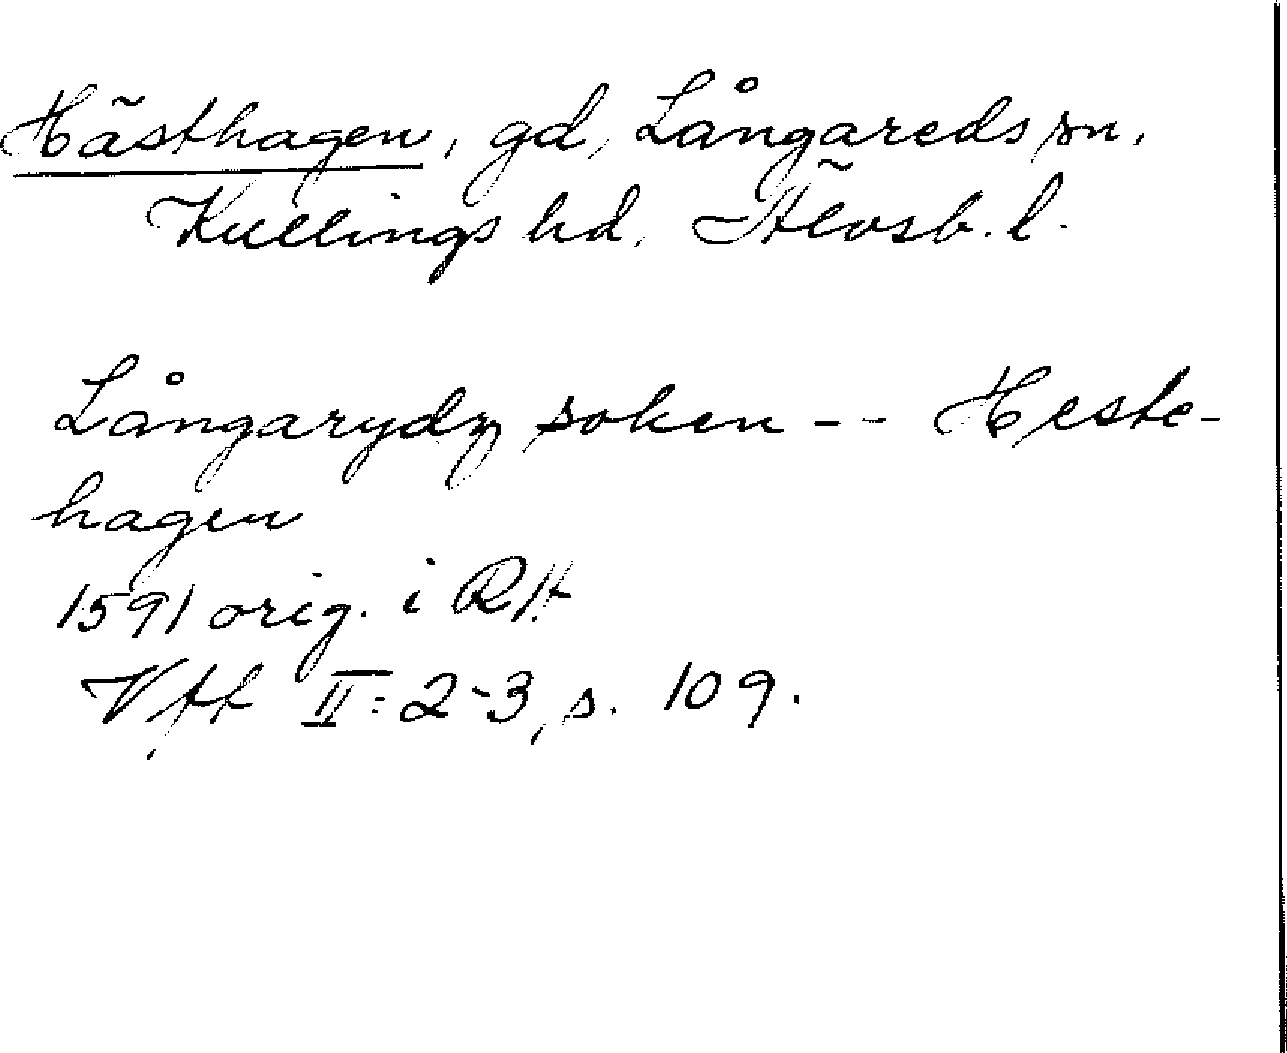 Hästhagen, gd, Långareds sn,
Kullings hd, Älvsb. l.
Långarydz soken -- Heste-
hagen
1591 orig. i RA
Vftt II: 2-3, s. 109.